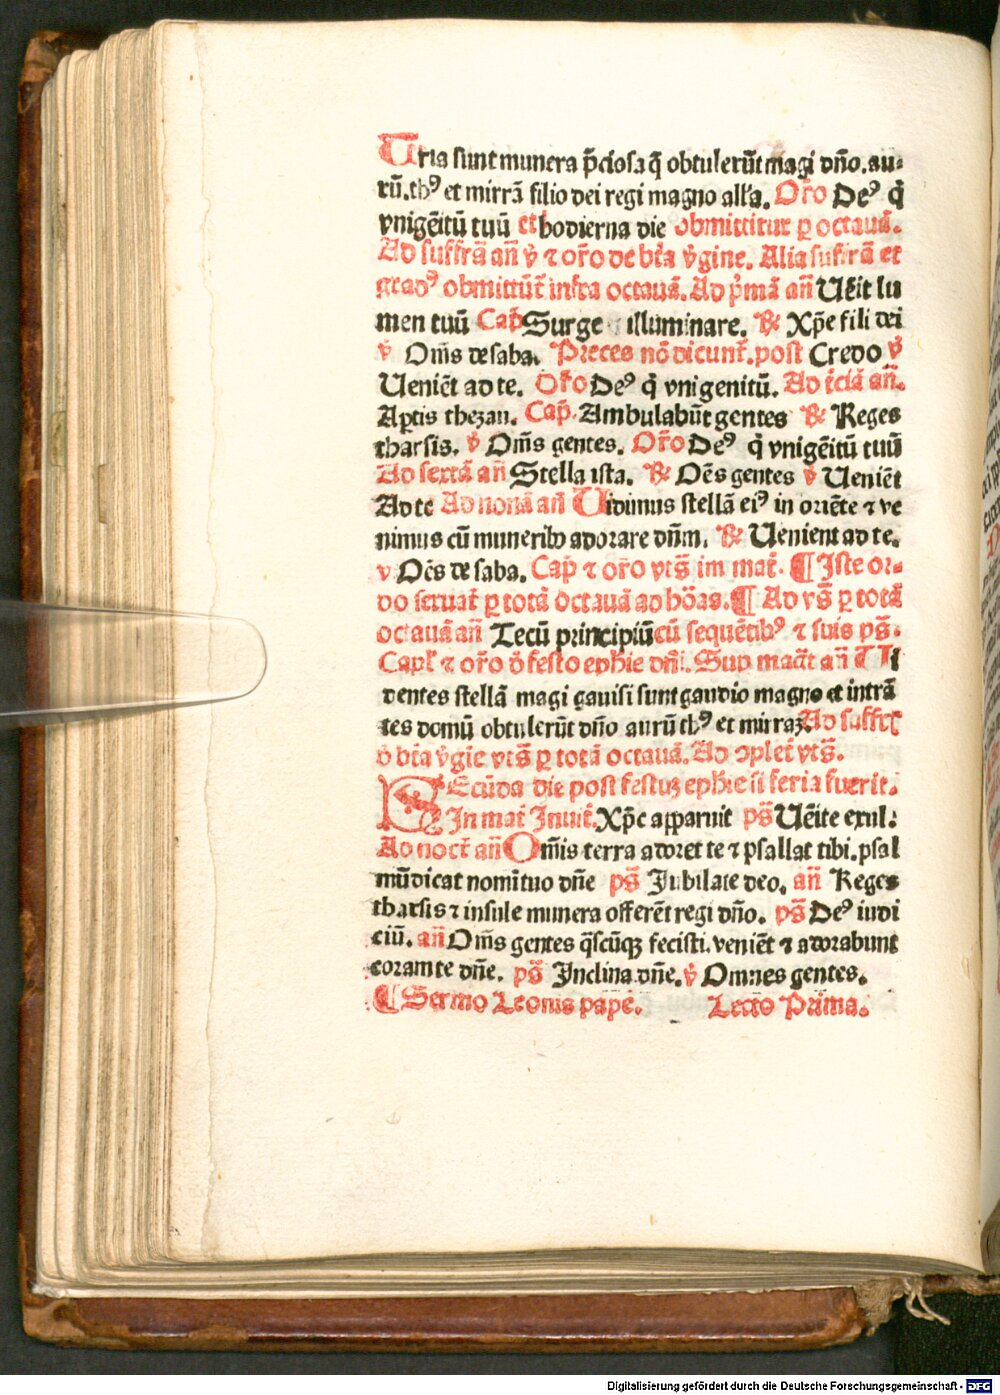 Tria sunt munera p̄ciosa q̄ obtulerūt magi dño. au-
rū. thꝰ et mirrā filio dei regi magno all'a. Or̄o Deꝰ q̄
vnigēitū tuū et hodierna die obmittitur ꝑ octauā.
Ad suffrā an̄ v̄ ⁊ or̄o de bt̄a v̄gine. Alia suffrā et
gradꝰ obmittūt̄ infra octauā. Ad p̄mā an̄ Uēit lu
men tuū Cap̄ Surge illuminare. ℟ Xp̄e fili dei
v̄ Om̄s de saba. Preces nō dicunt̄. post Credo v̄
Ueniēt ad te. Or̄o Deꝰ q̄ vnigenitū. Ad t̄ciā an̄.
Aꝑtis thezau. Cap̄. Ambulabūt gentes ℟ Reges
tharsis. v̄ Om̄s gentes. Or̄o Deꝰ q̄ vnigēitū tuū
Ad sextā an̄ Stella ista. ℟ Oēs gentes v̄ Ueniēt
Ad te Ad nonā an̄ Uidimus stellā eiꝰ in oriēte ⁊ ve
nimus cū munerib adorare dn̄m. ℟ Uenient ad te.
v Oēs de saba. Cap̄ ⁊ or̄o vts̄ im mat̄. ¶ Iste or-
do seruat̄ ꝑ totā octauā ad hōas. ¶ Ad vs̄ ꝑ totā
octauā an̄ Tecū principiū cū sequētibꝰ ⁊ suis ps̄.
Capl' ⁊ or̄o d̄ festo ephie dn̄i. Sup magt̄ an̄ Ui
dentes stellā magi gauisi sunt gaudio magno et intrā
tes domū obtulerūt dño aurū thꝰ et mirraꝫ Ad suffr̄
d̄ bt̄a v̄gie vts̄ ꝑ totā octauā. Ad ↄplet̄ vts̄.
SEcūda die post festuꝫ ephie si feria fuerit.
In mat̄ Inuit̄. Xp̄c apparuit ps̄ Uēite exul.
Ad noct̄ an̄ Om̄is terra adoret te ⁊ psallat tibi. psal
mū dicat nomī tuo dñe ps̄ Jubilate deo. an̄ Reges
tharsis ⁊ insule munera offerēt regi dño. ps̄ Deꝰ iudi
ciū. an̄ Om̄s gentes q̄scūqꝫ fecisti. veniēt ⁊ adorabunt
coram te dñe. ps̄ Inclina dñe. v̄ Omnes gentes.
¶ Sermo Leonis pape. Lectō Prima.
Digitalisierung gefördert durch die Deutsche Forschungsgemeinschaft - DFG